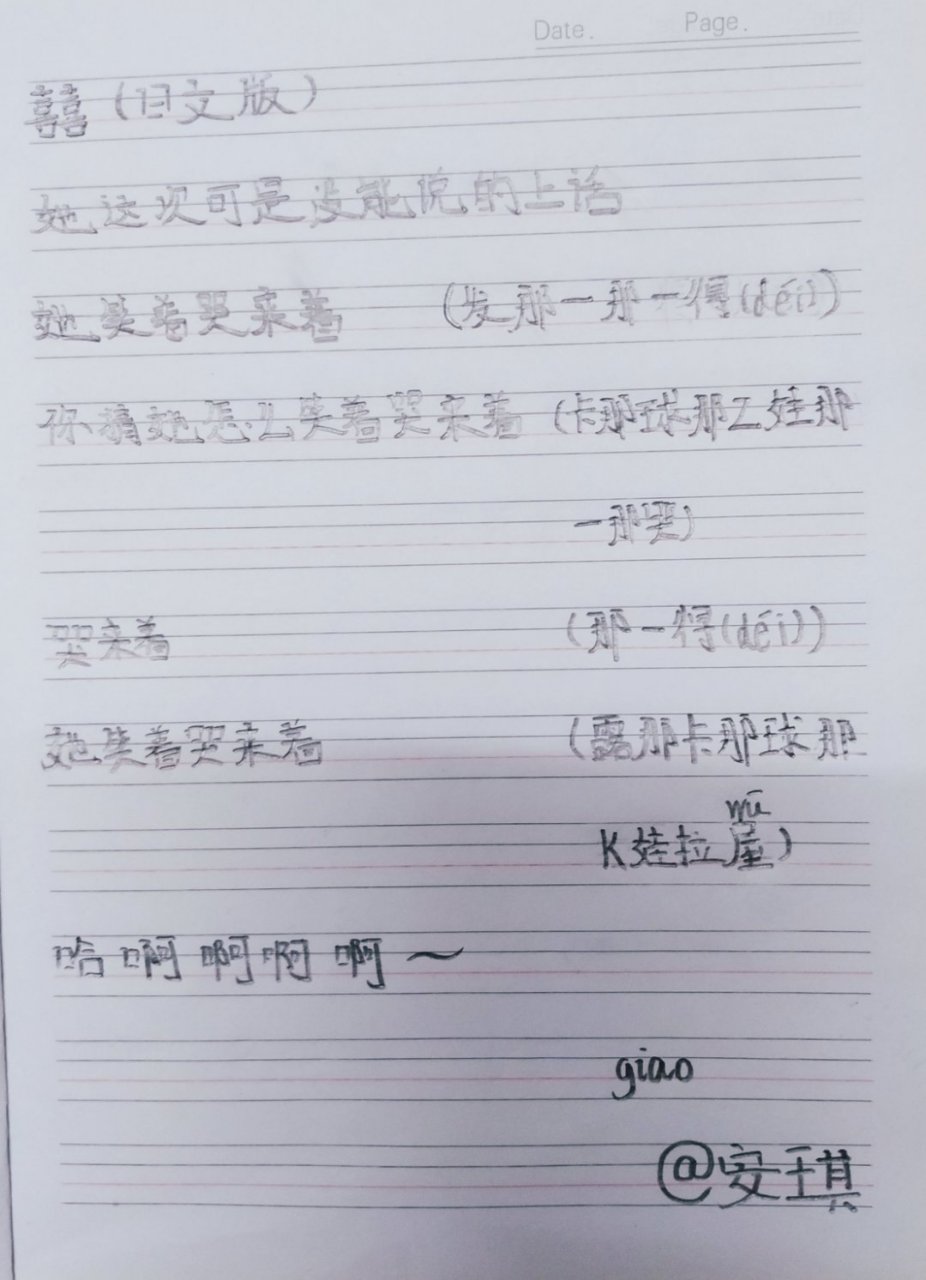 Date. Page.
囍（日文版）
她这次可是没能说的上话
她笑着哭来着 （发那一那一得(déi)）
你猜她怎么笑着哭来着 （卡那球那乙娃那
一那哭）
哭来着 （那一得(déi)）
她笑着哭来着 （露那卡那球那
wū
K娃拉屋）
哈啊啊啊啊～
giao
@安琪